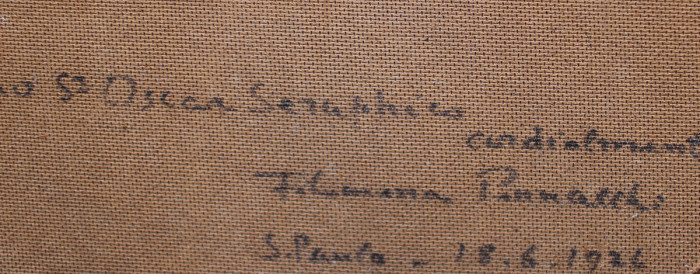 ao Sr Oscar Seraphico
cordialment
Filomena
S. Paulo - 18.6.1926